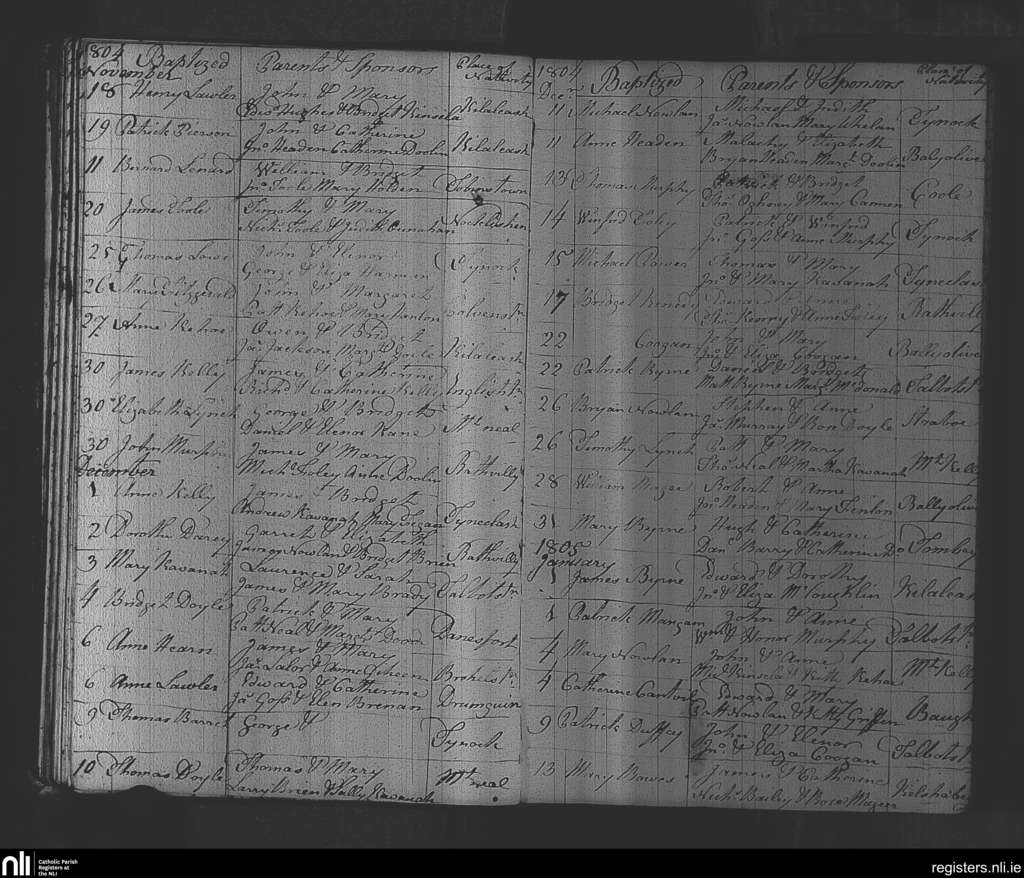 1804 Baptized Parents & Sponsors Place of Nativity
November
18 Henry Lawler John & Mary
Edwd Hughes & Bridget Kinsela Kilaleash
19 Patrick Pierson John & Catherine
Jno. Headen Catherine Doolin Kilaleash
11 Bernard Lenard William & Bridget
Jno. Toole Mary Holden
20 James Toole Timothy & Mary
Nichs. Toole & Judith
25 Thomas Lowe John & Elenor
George & Eliza Harmen Tynock
26 Maria Fitzgerald John & Margaret
Patt Kehoe & Mary
27 Anne Kehoe Owen & Bridget
Jas. Jackson Margt. Toole Kilaleash
30 James Kelly James & Catherine
Richd. & Catherine Kelly
30 Elizabeth Lynch George & Bridget
Daniel & Elenor Kane Mt. neal
30 John Murphy James & Mary
Michl. Foley Anne Doolin Rathvilly
December
1 Anne Kelly James & Bridget
Andrew Kavanagh Mary Tyneclash
2 Dorothy Darcy Garret & Elizabeth
James Nowlan & Bridget Brien Rathvilly
3 Mary Kavanah Laurence & Sarah
James & Mary Brady Talbotstn.
4 Bridget Doyle Patrick & Mary
Patt Neal & Margt. Doran Danesfort
6 Anne Hearn James & Mary
Jas. Lalor & Anne
6 Anne Lawler Edward & Catherine
Jas. Goss & Elen Brenan Drumguin
9 Thomas Barret George &
Tynock
10 Thomas Doyle Thomas & Mary
Larry Brien & Sally Kavanah Mt. neal
1804 Baptized Parents & Sponsors Place of Nativity
Decr.
11 Michael Nowlan Michael & Judith
Jas. Nowlan Mary Whelan Tynock
11 Anne Headen Malachy & Elizabeth
Bryan Headen Margt. Doolin Balyolive
13 Thomas Murphy Patrick & Bridget
Mary Coole
14 Winifrid Patrick & Winifrid
Jno. Goss & Anne Murphy Tynock
15 Michael Power Thomas & Mary
Jno. & Mary Kavanah Tyneclash
17 Bridget Edward & Anne
Thos. & Anne Foley Rathvilly
22 Coogan John & Mary
Jno. & Eliza Coogan Ballyolive
22 Patrick Byrne Daniel & Bridget
Matt Byrne Mary McDonald Talbotst
26 Bryan Nowlan Stephen & Anne
Jas. Murray & Doyle Straboe
26 Timothy Lynch Patt & Mary
Thos. Neal & Martha Kavanah Mt. Kelly
28 William Magee Robert & Anne
Jno. Headen & Mary Fenlon Ballyoliv
31 Mary Byrne Hugh & Catherine
Danl. Barry & Catherine Do Tombay
1805
January
1 James Byrne Edward & Dorothy
Jno. & Eliza McLoughlin Kilaleas
1 Patrick Mangan John & Anne
Wm. & Honor Murphy Talbotst
4 Mary Nowlan John & Anne
Kinsela & Kitty Kehoe Mt. Kelly
4 Catherine Edward & Mary
Patt Nowlan & Griffen Baugh
9 Patrick Duffey John & Elenor
Jno. & Eliza Coogan Talbotst
13 Mary Bowes James & Catherine
Nichs. Bailey & Rose Magee
nli Catholic Parish
Registers at
the NLI
registers.nli.ie